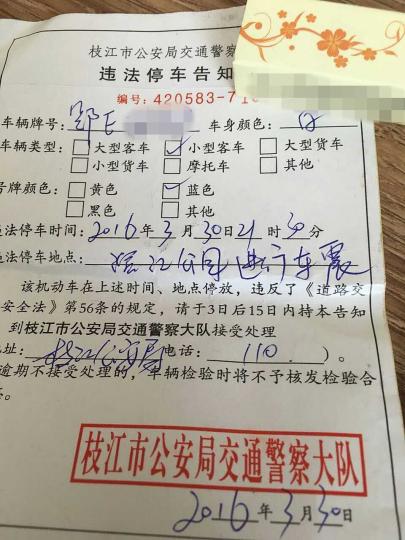 枝江市公安局交通警察
违法停车告知
编号：420583-71
车辆牌号：鄂E 车身颜色：白
车辆类型：□大型客车 ☑小型客车 □大型货车
□小型货车 □摩托车 □其他
号牌颜色：□黄色 ☑蓝色
□黑色 □其他
违法停车时间：2016年3月30日21时30分
违法停车地点：沿江公园进行车震
该机动车在上述时间、地点停放，违反了《道路交
安全法》第56条的规定，请于3日后15日内持本告知
到枝江市公安局交通警察大队接受处理
地址：枝江公安局电话：110）。
逾期不接受处理的，车辆检验时将不予核发检验合
枝江市公安局交通警察大队
2016年3月30